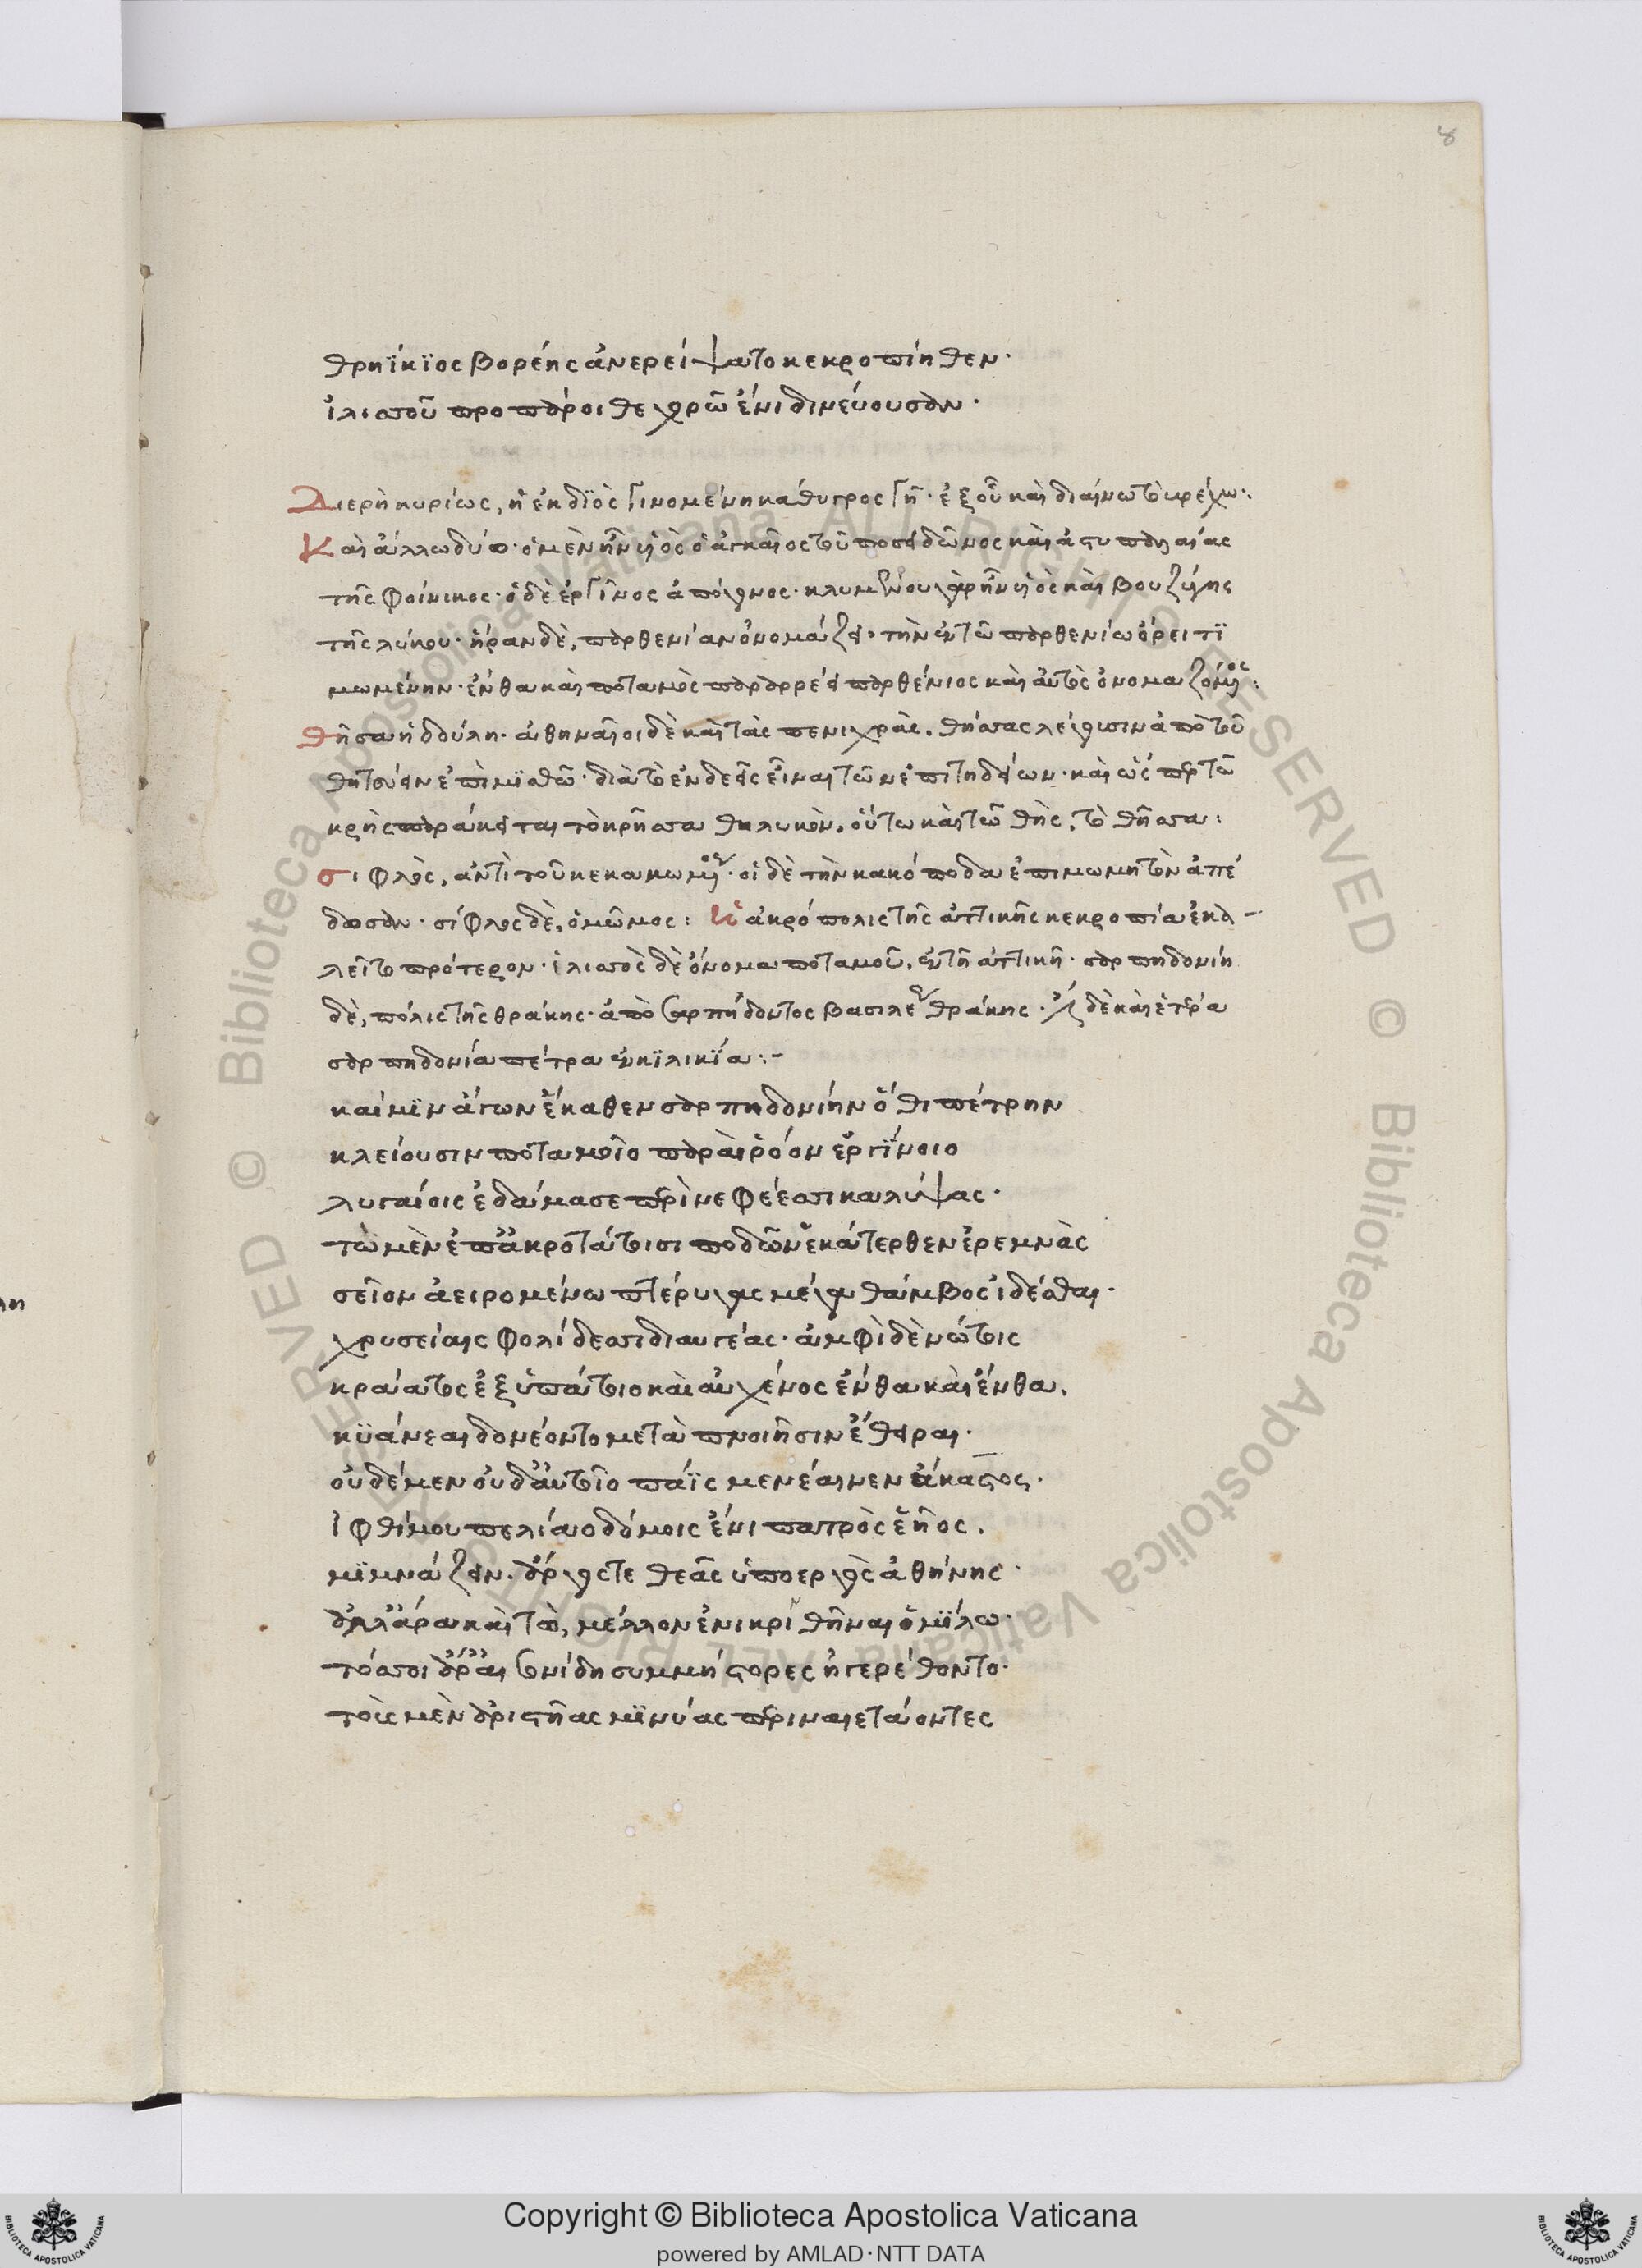 8
θρηΐκϊος βορέης ἀνερείψατο κεκροπίηθεν·
ἰλισσοῦ προπάροιθε χορῶ ἔνι δινεύουσαν·
Διερὴ κυρίως, ἡ ἐκ διὸς γινομένη κάθυγρος γῆ· ἐξ οὗ καὶ διαίνω τὸ βρέχω:
Καὶ ἄλλω δύο· ὁ μὲν ἦν υἱὸς ὁ ἀγκαῖος τοῦ ποσειδῶνος καὶ ἀστυπαλαίας
τῆς φοίνικος· ὁ δὲ ἐργῖνος ἀπόγονος· κλυμένου γὰρ ἦν υἱὸς καὶ βουζύγης
τῆς λύκου· ἥραν δὲ, παρθενίαν ὀνομάζει· τὴν ἐν τῶ παρθενίω ὄρει τι
μωμένην· ἔνθα καὶ ποταμὸς παραρρέει παρθένιος καὶ αὐτὸς ὀνομαζόμενος:
θῆσσα ἡ δούλη· ἀθηναῖοι δὲ καὶ τὰς πενιχρὰς, θήσσας λέγουσιν ἀπὸ τοῦ
θητεύειν ἐπὶ μισθῶ· διὰ τὸ ἐνδεεῖς εἶναι τῶν ἐπιτηδείων· καὶ ὡς παρὰ τῶ
κρὴς παράκειται τὸ κρῆσσα θηλυκὸν, οὕτω καὶ τῶ θὴς, τὸ θῆσσα:
σιφλὸς, ἀντὶ τοῦ κεκακωμένου· οἱ δὲ τὴν κακόποδα ἐπιμωμητὸν ἀπέ
δοσαν· σίφλος δὲ, ὁ μῶμος: Ἡ ἀκρόπολις τῆς ἀττικῆς κεκροπία ἐκα-
λεῖτο πρότερον· ἰλισσὸς δὲ ὄνομα ποταμοῦ, ἐν τῆ ἀττικῆ· σαρπηδονίη
δὲ, πόλις τῆς θράκης· ἀπὸ σαρπήδοντος βασιλέως θράκης· ἔστι δὲ καὶ ἑτέρα
σαρπηδονία πέτρα ἐν κϊλικΐα:-
καί μϊν ἄγων ἕκαθεν σαρπηδονίην ὅθι πέτρην
κλείουσιν ποταμοῖο παραὶ ῥόον ἐργΐνοιο
λυγαίοις ἐδάμασε περὶ νεφέεσσι καλύψας·
τὼ μὲν ἐπ' ἀκροτάτοισι ποδῶν ἑκάτερθεν ἐρεμνὰς
σεῖον ἀειρομένω πτέρυγας μέγα θάμβος ἰδέσθαι·
χρυσείαις φολίδεσσι διαυγέας· ἀμφὶ δὲ νώτοις
κράατος ἐξ ὑπάτοιο καὶ αὐχένος ἔνθα καὶ ἔνθα,
κϋάνεαι δονέοντο μετὰ πνοιῆσιν ἔθειραι·
οὐδέ μεν οὐδ' αὐτοῖο πάϊς μενέαινεν ἄκαστος·
ἰφθίμου πελίαο δόμοις ἔνι πατρὸς ἑῆος,
μϊμνάζειν. ἄργος τε θεᾶς ὑποεργὸς ἀθήνης·
ἀλλ' ἄρα καὶ τὼ, μέλλον ἐνικρινθῆναι ὁμΐλω·
τόσσοι ἄρ' αἰσονίδη συμμήστορες ἠγερέθοντο·
τοὺς μὲν ἀριστῆας μϊνύας περιναιετάοντες